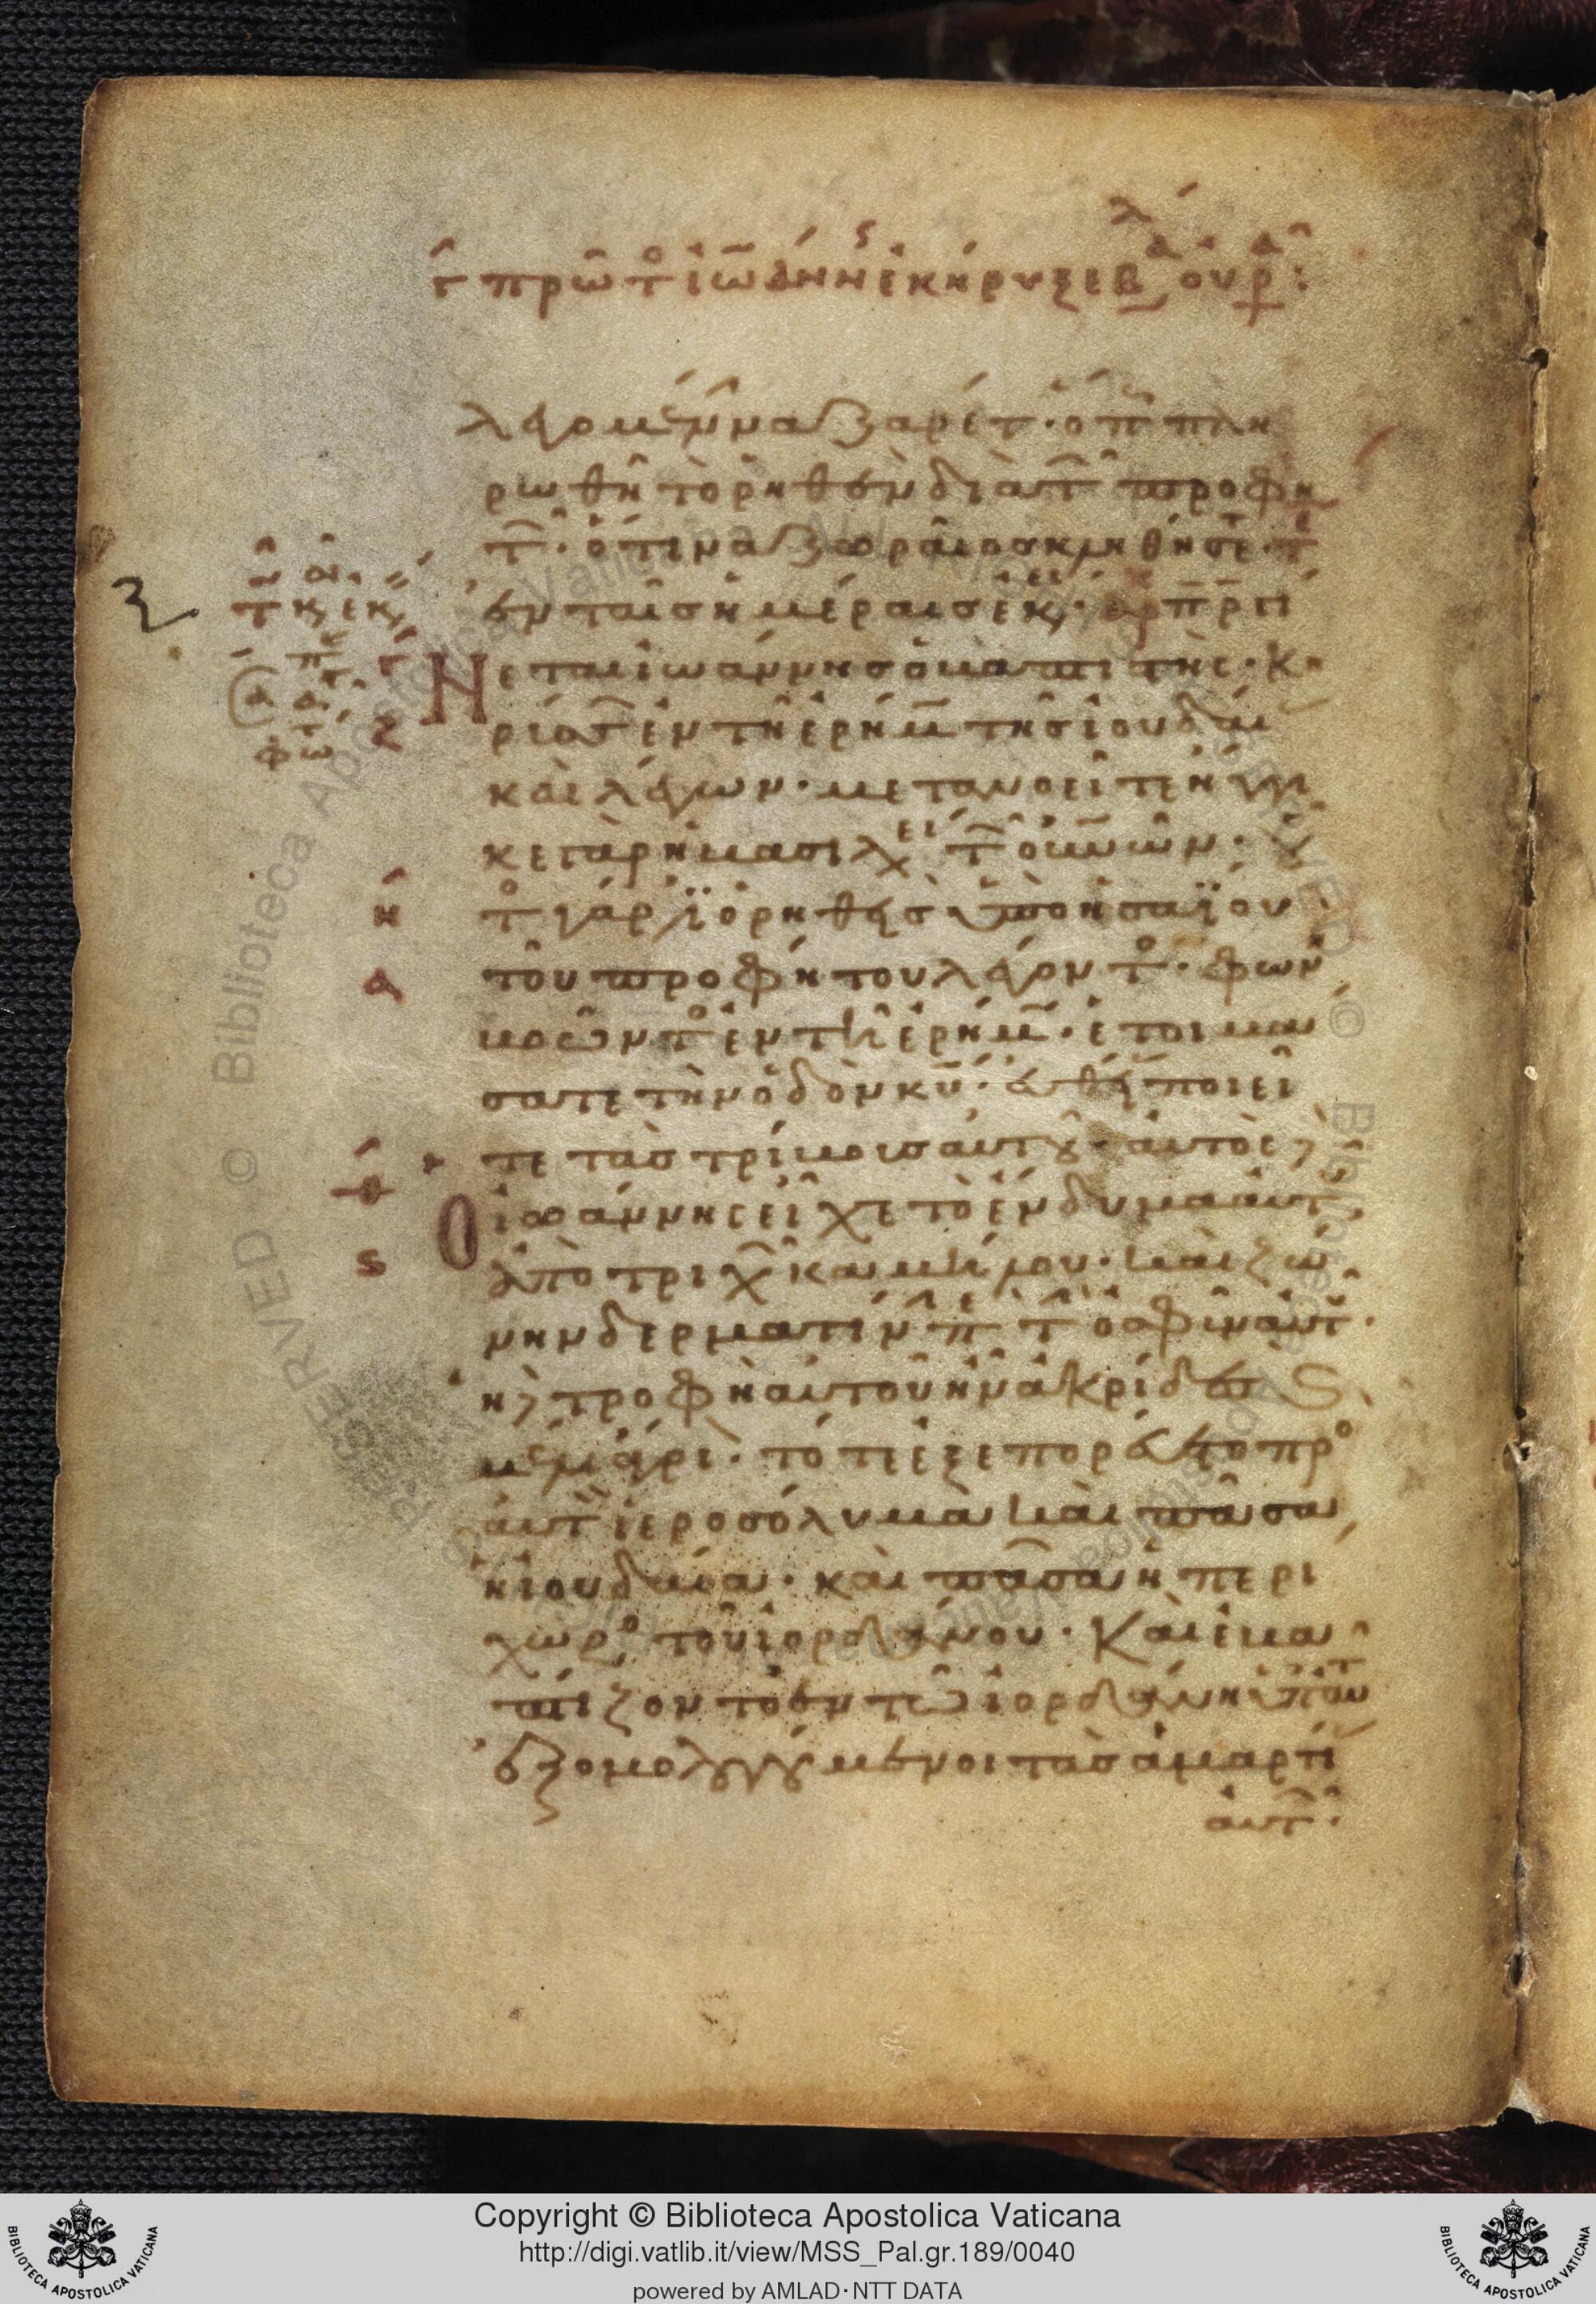 γ πρῶτο ἰωάννης ἐκήρυξε βα λ ουρα :
λεγομένην ναζαρέτ · ὅπ πλη
ρωθῆ τὸ ρηθὲν διὰ τ προφη
τ · ὅτι ναζωραῖος κληθήσετ · τέ
ἐν ταῖς ἡμέραις ἐκ · αρ
Νεται ἰωάννης ὁ βαπτιστης · κη
ρύσσ ἐν τῆ ἐρήμ τῆς ἰουδαί
καὶ λέγων · μετανοεῖτε ἤγγι
κε γὰρ ἡ βασιλεί τ οὐνῶν · οὗ
το γάρ ἐϊ ὁ ρηθεὶσ ὑπὸ ἡσαΐου
τοῦ προφήτου λέγοντο · φων
βοῶντο ἐν τῆ ἐρήμ · ἑτοιμα
σατε τὴν ὁδὸν κυ · ευθεί ποιεῖ
τε τὰς τρίβους αὐτοῦ · αὐτὸς δ
Οἰωάννης εἶχε τὸ ἔνδυμα αὐτ
ἀπὸ τριχ καμήλου · καὶ ζώ
νην δερματίν π τ ὀσφῦν αὐτ ·
ἡ δ τροφὴ αὐτοῦ ἦν ἀκρίδες κ
μέλι ἄγρι · τότε ἐξεπορεύετο προ
αὐτ ἱεροσόλυμα καὶ πᾶσα
ἡ ἰουδαία · καὶ πᾶσα ἡ περί
χωρο τοῦ ἰορδάνου · Καὶ ἐβα
πτίζοντο ἐν τῶ ἰορδάνη ὑπ αυτ
ἐξομολογούμενοι τὰς ἁμαρτί
αὐτ ·
τ κ εκ
φω
ζ
η
α
θ
ς
Copyright © Biblioteca Apostolica Vaticana
http://digi.vatlib.it/view/MSS_Pal.gr.189/0040
powered by AMLAD·NTT DATA
BIBLIOTECA APOSTOLICA VATICANA
BIBLIOTECA APOSTOLICA VATICANA